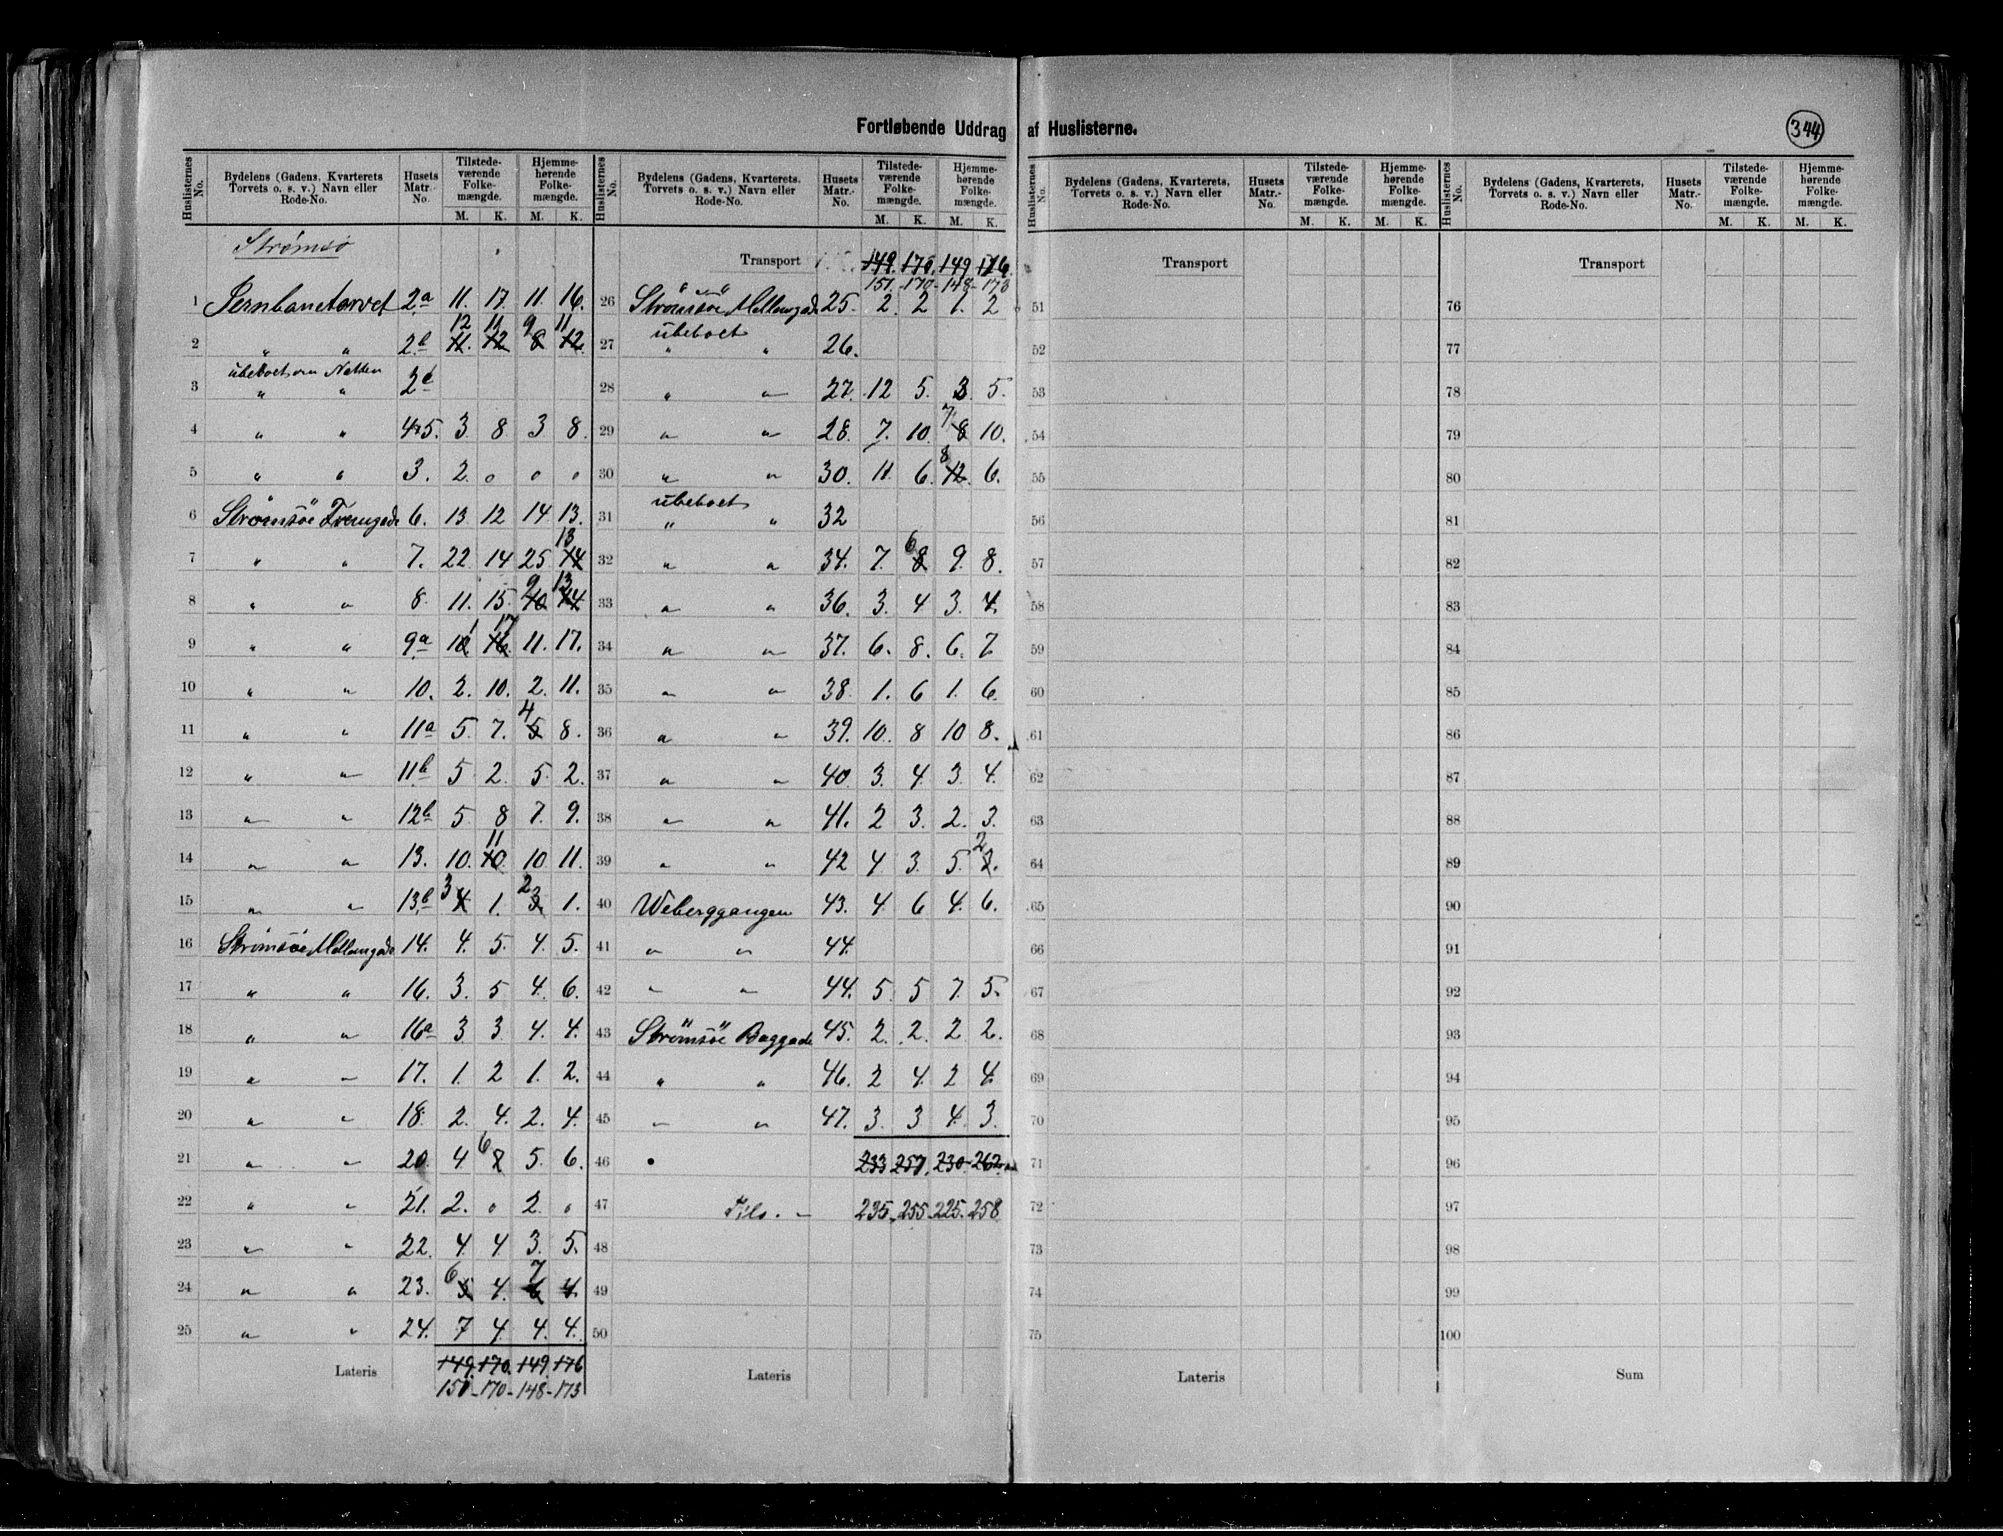 Fortløbende Uddrag af Huslisterne.
344
Huslisternes No. Bydelens (Gadens, Kvarterets Torvets o. s. v.) Navn eller Rode-No. Husets Matr. No. Tilstedeværende Folkemængde. M. K. Hjemmehørende Folkemængde. M. K.
Strømsø
1 Jernbanetorvet 2a 11. 17. 11. 16.
2 " " 2b 12 11 9 11
ubeboet om Natten
3 " " 2c
4 " " 4+5. 3 8 3 8.
5 " " 3. 2. 0 0 0
6 Strømsöe Fremgade 6. 13 12 14 13.
7 " " 7. 22. 14 25 13
8 " " 8. 11. 15. 9 13
9 " " 9a 11 17 11. 17.
10 " " 10. 2. 10. 2. 11.
11 " " 11a 5. 7. 4 8.
12 " " 11b 5 2. 5. 2.
13 " " 12b 5. 8 7. 9.
14 " " 13. 10. 11 10 11.
15 " " 13b 3 1. 2 1.
16 Strömsöe Mellemgade 14. 4. 5. 4. 5.
17 " " 16. 3. 5 4. 6.
18 " " 16a 3 3 4. 4.
19 " " 17. 1. 2 1. 2.
20 " " 18. 2. 4. 2. 4.
21 " " 20. 4 6 5. 6.
22 " " 21. 2. 0 2. 0
23 " " 22. 4. 4 3. 5.
24 " " 23. 6 4. 7 4.
25 " " 24. 7 4. 4. 4.
Lateris 149. 170. 149. 176
151 - 170 - 148 - 173
Huslisternes No. Bydelens (Gadens, Kvarterets. Torvets o. s. v.) Navn eller Rode-No. Husets Matr.-No. Tilstedeværende Folkemængde. M. K. Hjemmehørende Folkemængde. M. K.
Transport 149. 170. 149 176.
151. - 170 - 148 - 173
26 Strömsöe Mellemgade 25. 2. 2 1. 2
ubeboet
27 " " 26.
28 " " 27. 12 5. 3. 5.
29 " " 28. 7. 10. 7 10.
30 " " 30. 11. 6. 8 6.
ubeboet
31 " " 32
32 " " 34. 7. 6 9. 8.
33 " " 36. 3. 4 3. 4.
34 " " 37. 6. 8. 6. 7
35 " " 38. 1. 6 1. 6.
36 " " 39. 10. 8 10 8.
37 " " 40 3. 4. 3. 4.
38 " " 41. 2 3. 2. 3.
39 " " 42 4 3. 5. 2
40 Weberggangen 43. 4. 6 4. 6.
41 " " 44.
42 " " 44. 5. 5 7. 5.
43 Strömsöe Baggade 45. 2. 2. 2 2.
44 " " 46. 2 4. 2 4
45 " " 47. 3. 3 4. 3.
46 233 257. 230 - 262
47 Tils. - 235. 255. 225. 258
48
49
50
Lateris
Huslisternes No. Bydelens (Gadens, Kvarterets, Torvets o. s. v.) Navn eller Rode-No. Husets Matr.-No. Tilstedeværende Folkemængde. M. K. Hjemmehørende Folkemængde. M. K.
Transport
51
52
53
54
55
56
57
58
59
60
61
62
63
64
65
66
67
68
69
70
71
72
73
74
75
Lateris
Huslisternes No. Bydelens (Gadens, Kvarterets, Torvets o. s. v.) Navn eller Rode-No. Husets Matr.-No. Tilstedeværende Folkemængde. M. K. Hjemmehørende Folkemængde. M. K.
Transport
76
77
78
79
80
81
82
83
84
85
86
87
88
89
90
91
92
93
94
95
96
97
98
99
100
Sum